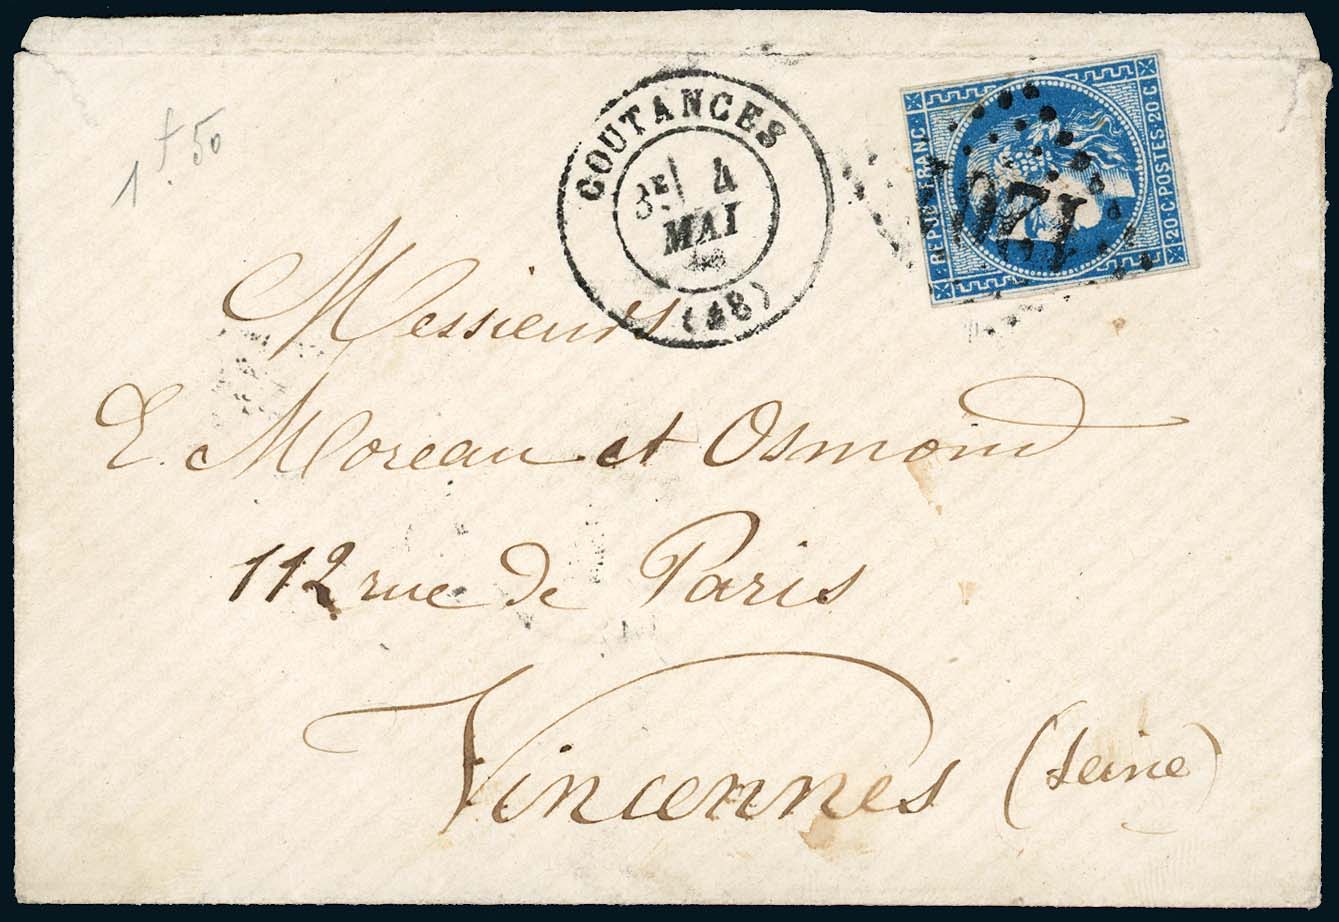 1f50
COUTANCES
4
MAI
(48)
REPUB FRANC
20·C·POSTES·20 C
Messieurs
E. Moreau et Osmond
112 rue de Paris
Vincennes (Seine)